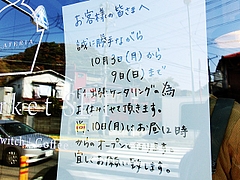 お客様の皆さまへ
誠に勝手ながら
10月3日(月)から
9日(日)まで
出張ケータリングの為
お休みさせて頂きます。
10日(月)はお昼12時
からのオープンと
宜しくお願い致します。
ket
witch & Coffee